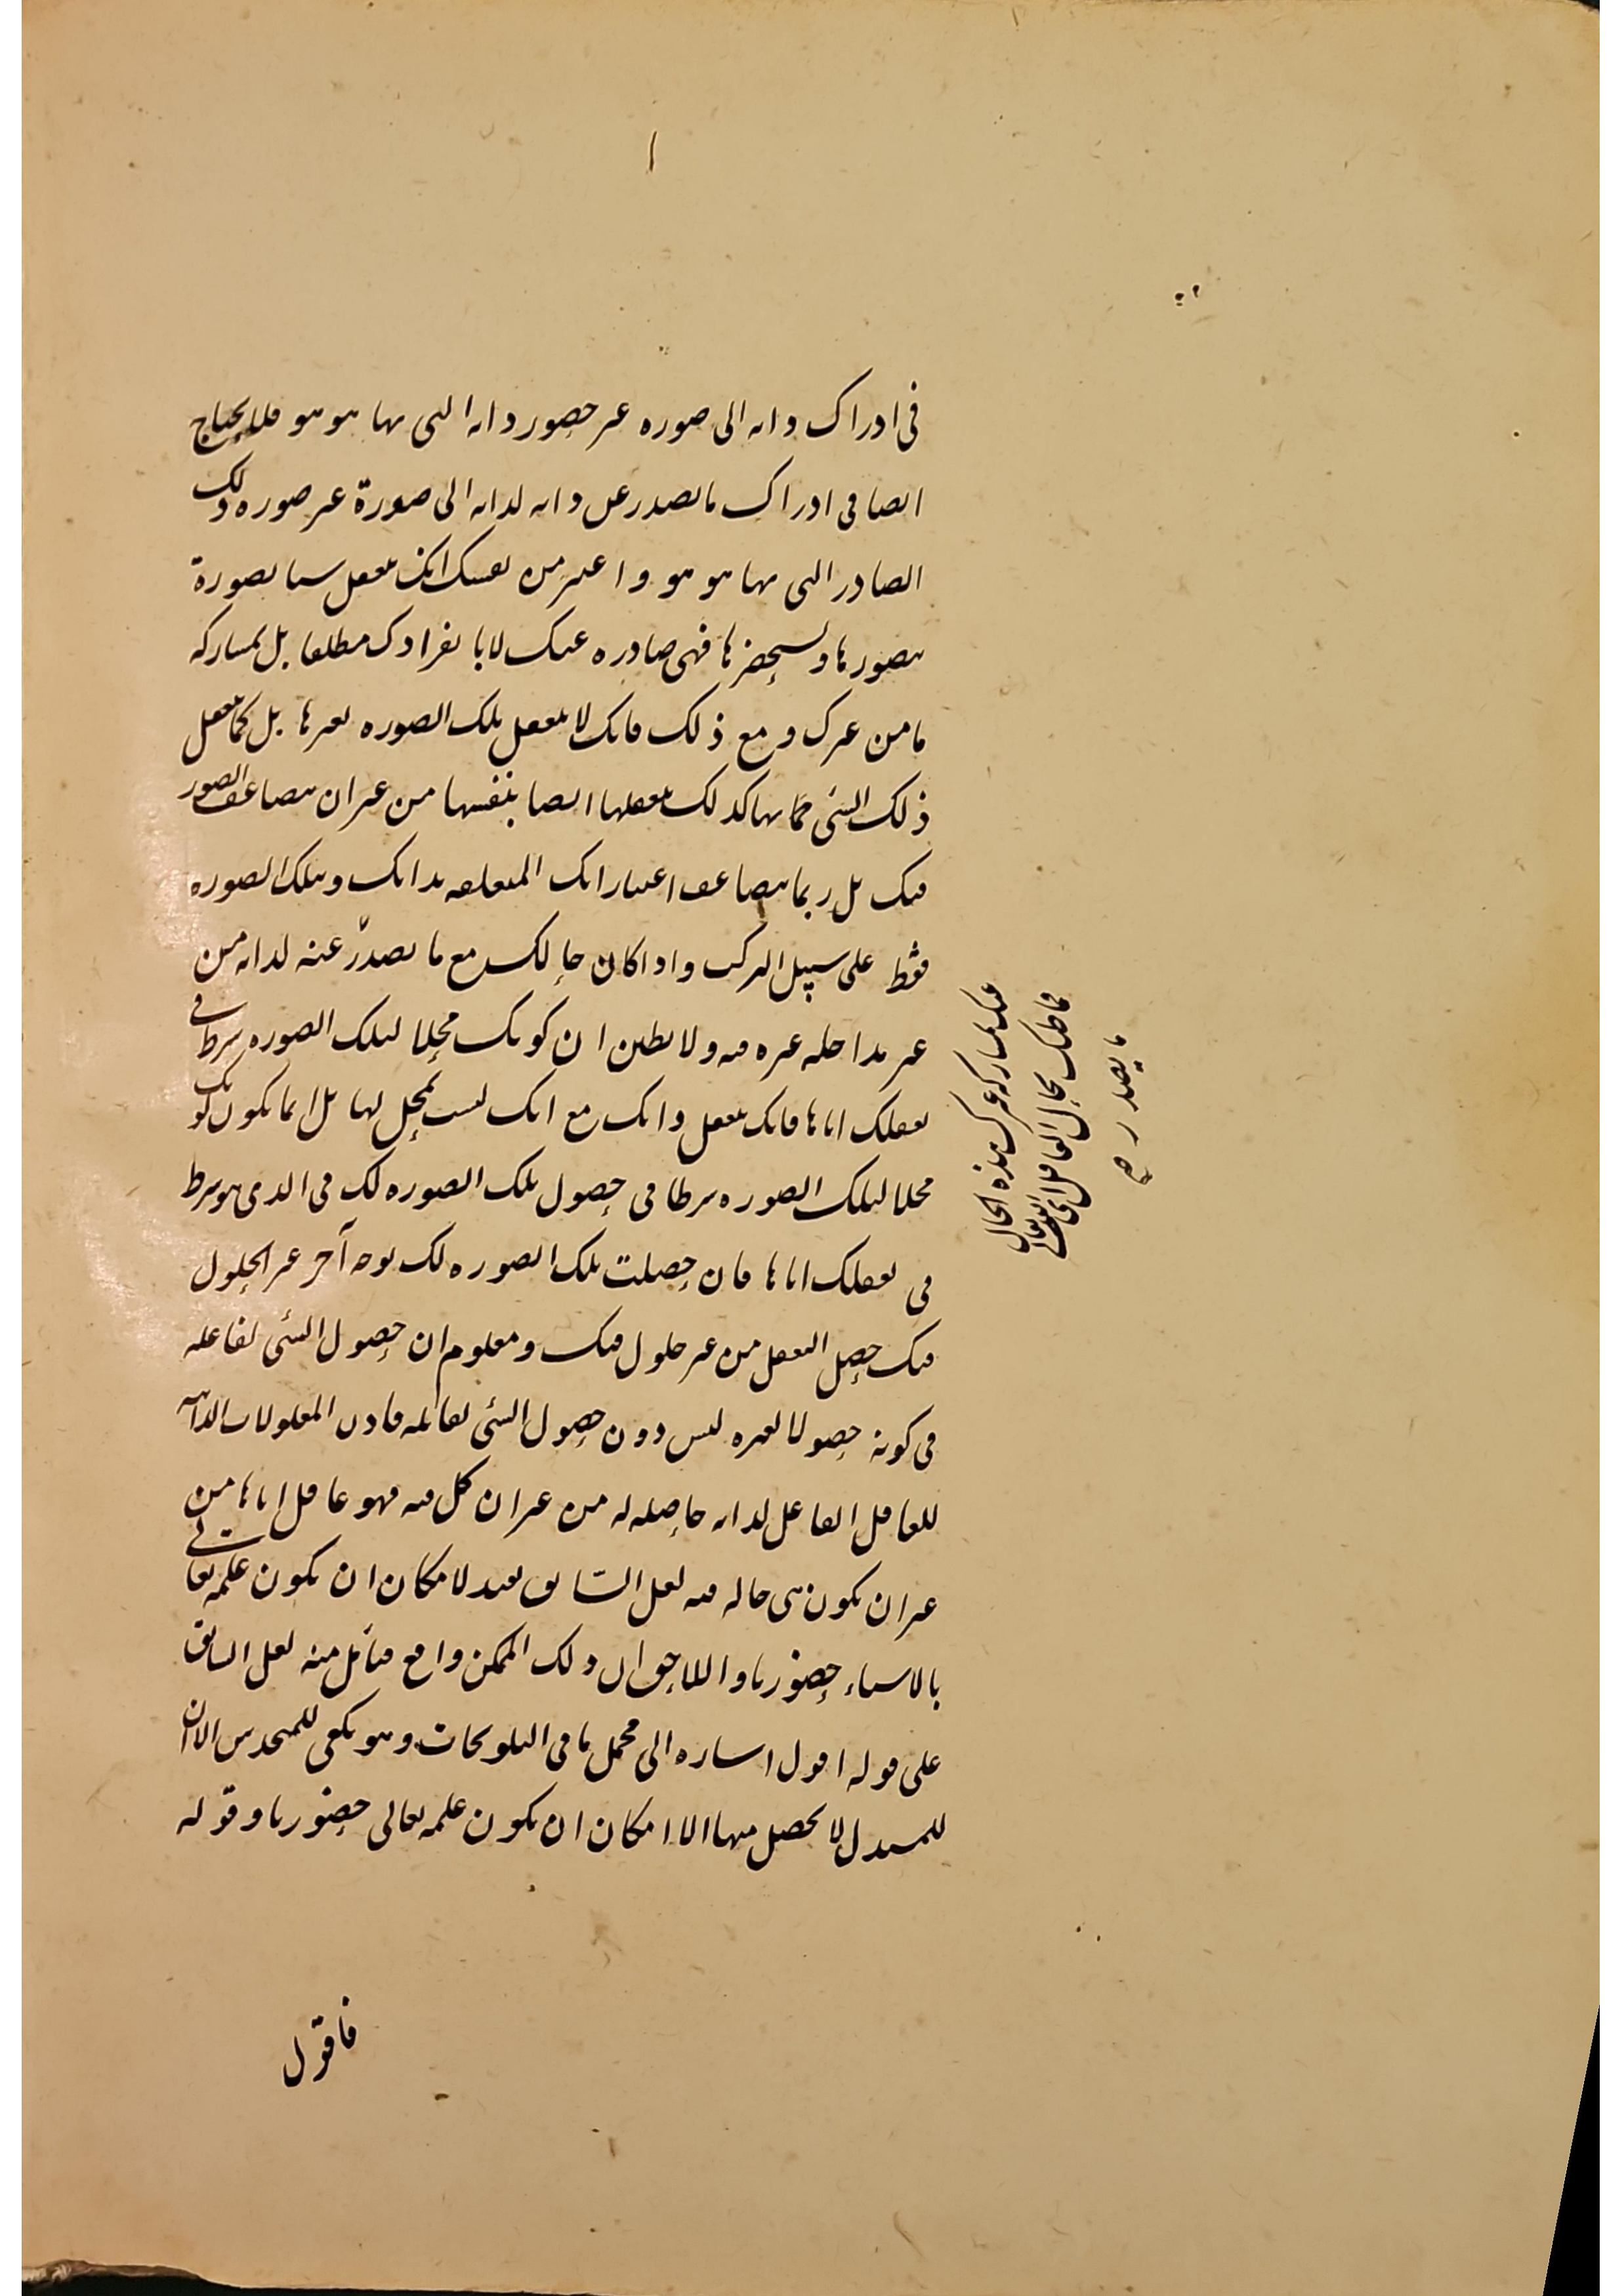 في ادراك ذاته الى صورة غير حصور ذاته التى بها هو هو فلا يحتاج
ايضا في ادراك ما يصدر عن ذاته لذاته الى صورة غير صورة ذلك
الصادر التى بها هو هو و اعتبر من نفسك انك تعقل شيئا بصورة
تتصورها و تستحضرها فهي صادرة عنك لا بانفرادك مطلقا بل بمشاركة
ما من غيرك و مع ذلك فانك لا تعقل تلك الصورة بغيرها بل كما تعقل
ذلك الشئ بها كذلك تعقلها ايضا بنفسها من غير ان تتضاعف الصور
فيك بل ربما تتضاعف اعتباراتك المتعلقة بذاتك و بتلك الصورة
فقط على سبيل التركب و اذا كان حالك مع ما يصدر عنه لذاته من
غير مداخلة غيره فيه و لا تظنن ان كونك محلا لتلك الصورة شرط في
تعقلك اياها فانك تعقل ذاتك مع انك لست بمحل لها بل انما يكون كونك
محلا لتلك الصورة شرطا في حصول تلك الصورة لك في الذي هو شرط
في تعقلك اياها فان حصلت تلك الصورة لك بوجه آخر غير الحلول
فيك حصل التعقل من غير حلول فيك و معلوم ان حصول الشئ لفاعله
في كونه حصولا لغيره ليس دون حصول الشئ لقابله فاذن المعلولات الذاتية
للعاقل الفاعل لذاته حاصلة له من غير ان تحل فيه فهو عاقل اياها من
غير ان يكون هي حالة فيه لعل السابق يفيد لامكان ان يكون علمه تعالى
بالاشياء حضوريا و اللاحق ان ذلك الممكن واقع فتأمل منه لعل السابق
على قوله اقول اشارة الى محمل ما في التلويحات و هو يكفي للمتحدس الا ان
للمستدل لا يحصل منها الا امكان ان يكون علمه تعالى حضوريا و قوله
فاقول
عنك بمشاركة غيرك هذه الحال
فما ظنك بحال العاقل
ما يصدر صح